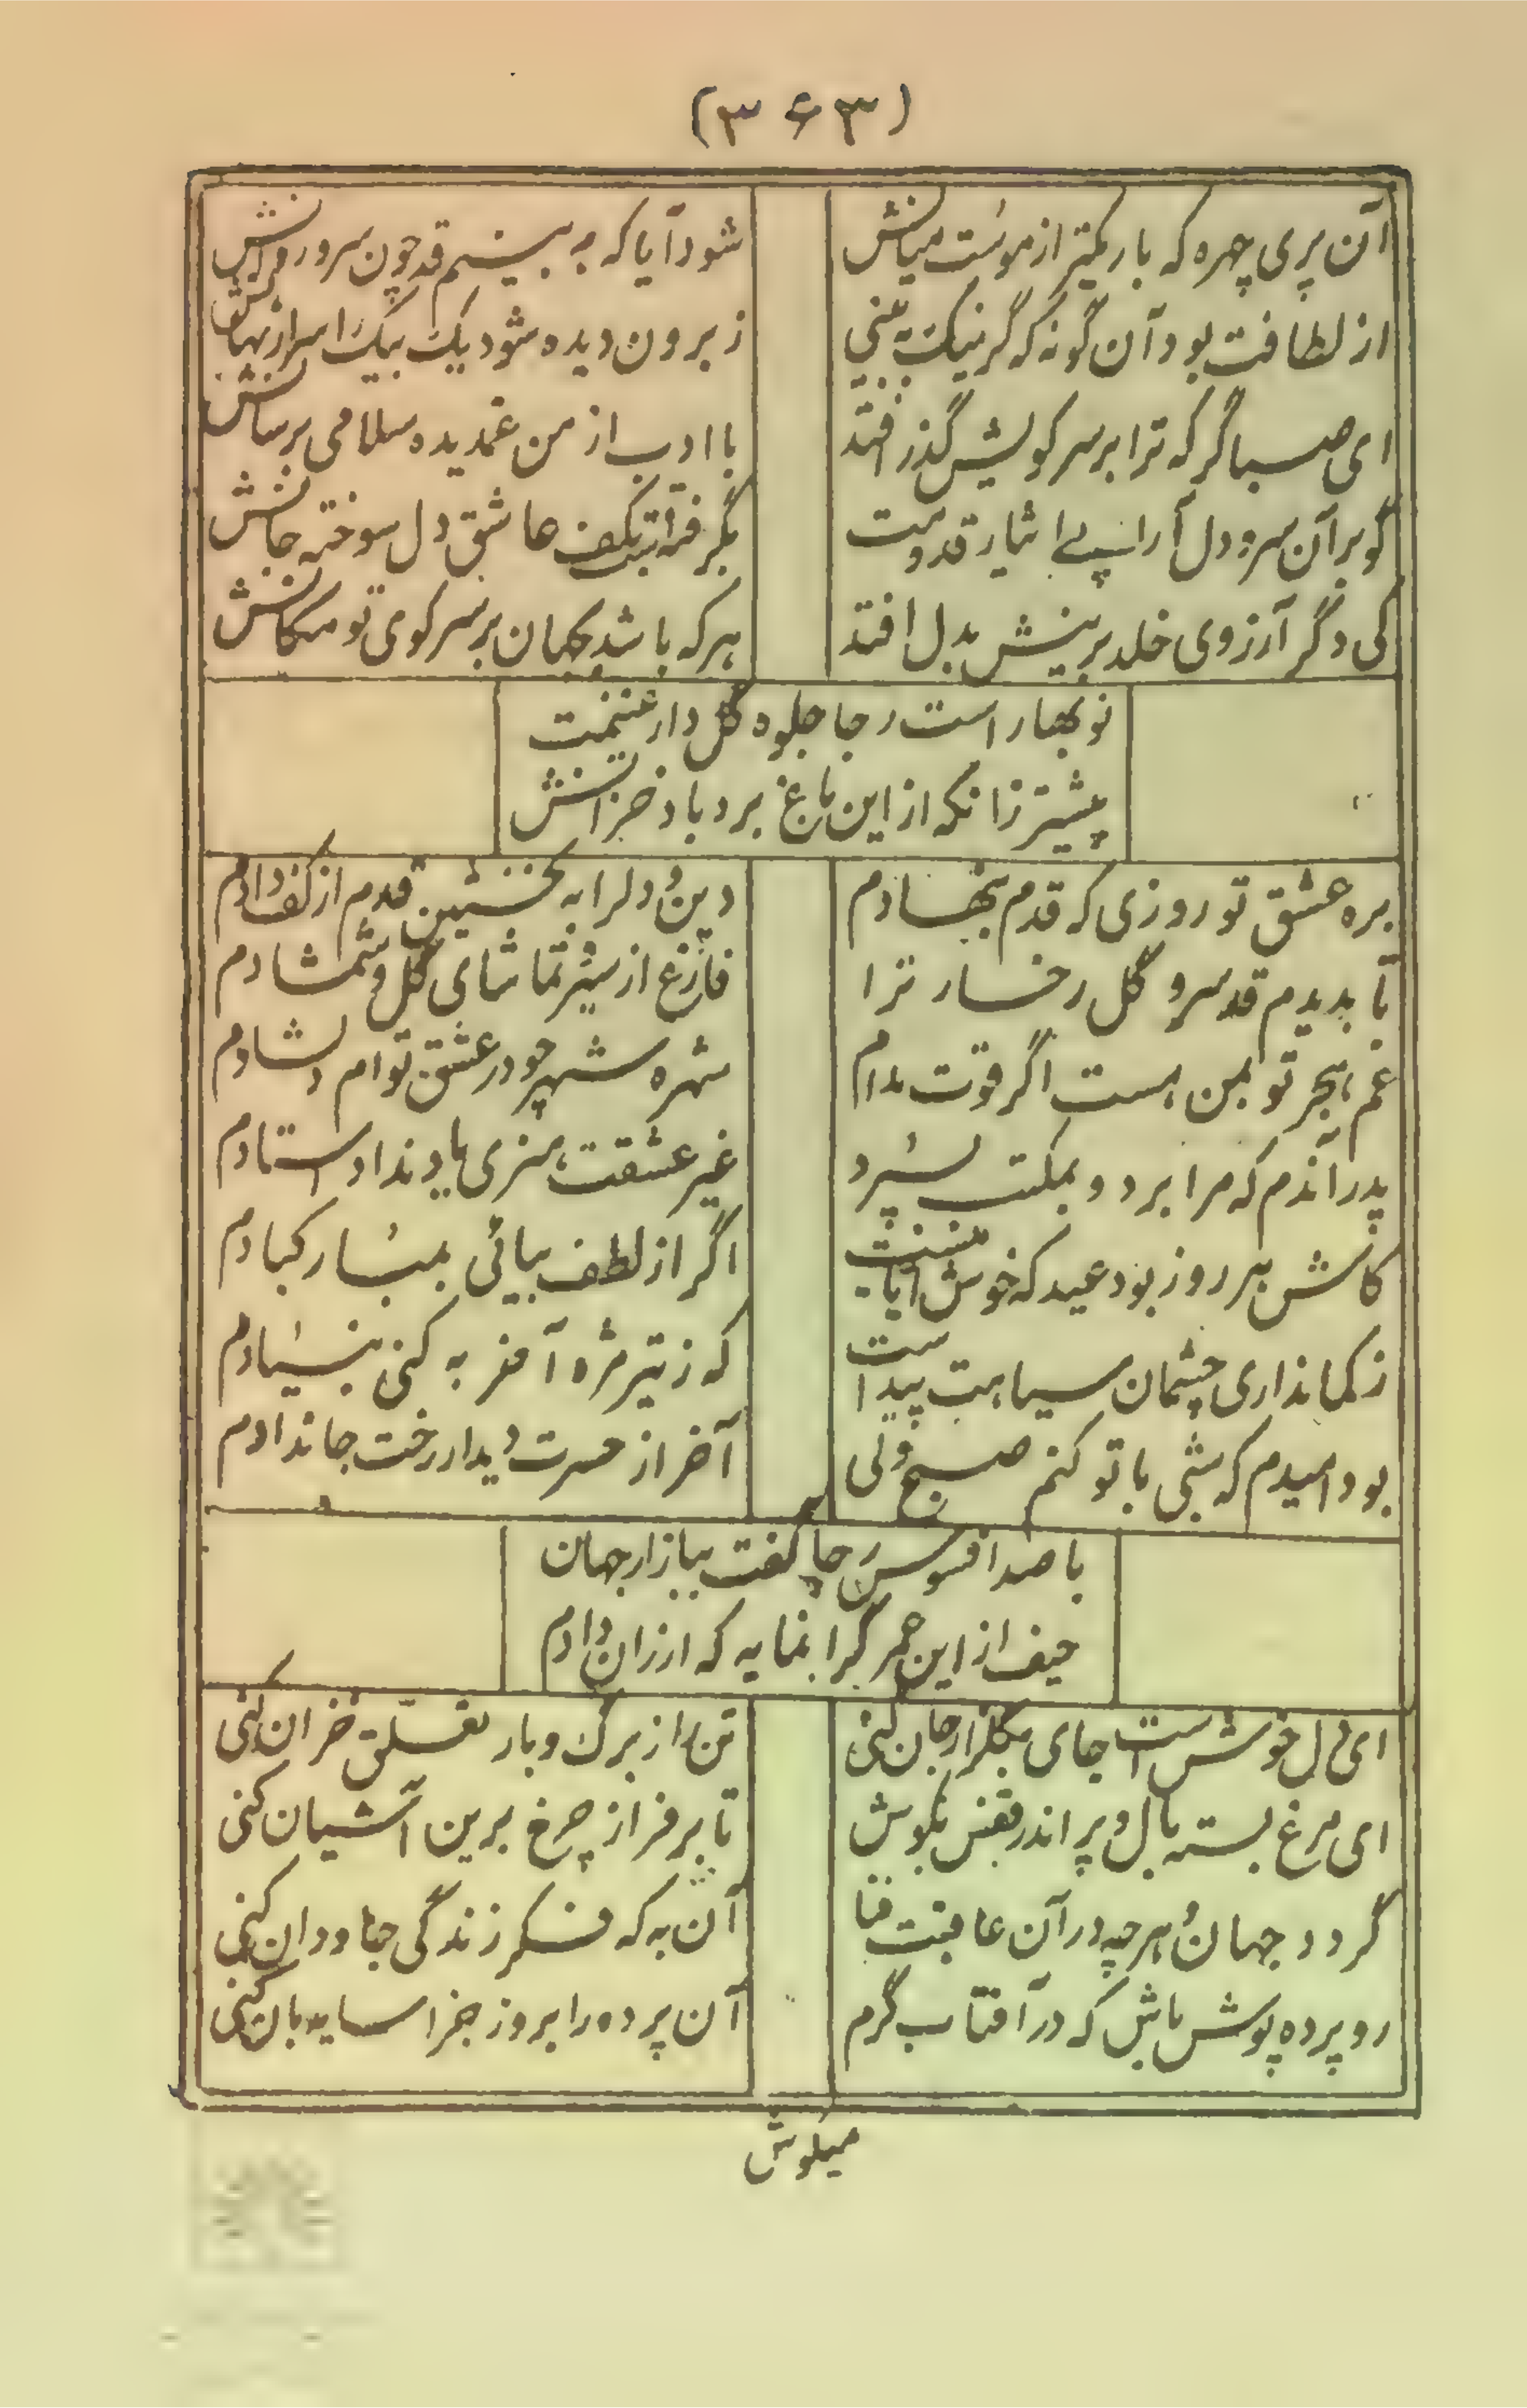 (۳۶۳)
آن پری چهره که باریکتر از موست میانش
شود آیا که به بینیم قد چون سرو روانش
از لطافت بود آن گونه که گر نیک به بینی
ز برون دیده شود یک بیک اسرار نهانش
ای صبا گر که ترا بر سر کویش گذر افتد
با ادب از من غمدیده سلامی برسانش
گو بر آن سرو دل آرا پی ایثار قدومت
بگرفته است بکف عاشق دل سوخته جانش
کی دگر آرزوی خلد برینش بدل افتد
هر که باشد بجهان بر سر کوی تو مکانش
نوبهار است رجا جلوه گل دار غنیمت
پیشتر زانکه از این باغ برد باد خزانش
بره عشق تو روزی که قدم بنهادم
دین و دل را به نخستین قدم از کف دادم
تا بدیدم قد سرو گل رخسار ترا
فارغ از سیر تماشای گل و شمشادم
غم هجر تو بمن هست اگر قوت مدام
شهره شهر چو در عشق توام دلشادم
پدر آندم که مرا برد و بمکتب بسپرد
غیر عشقت هنری یاد نداد استادم
کاش هر روز بود عید که خوش آیاتیست
اگر از لطف بیائی بمبارکبادم
ز کمانداری چشمان سیاهت پیداست
که ز تیر مژه آخر به کنی بنیادم
بود امیدم که شبی با تو کنم صبح ولی
آخر از حسرت دیدار رخت جاندادم
با صد افسوس رجا گفت ببازار جهان
حیف از این عمر گرانمایه که ارزان دادم
ای دل خوش است جای بگلزار جان کنی
تن را از برگ و بار تعلق خزان کنی
ای مرغ بسته بال و پر اندر قفس بکوش
تا بر فراز چرخ برین آشیان کنی
گردد جهان و هر چه در آن عاقبت فنا
آن به که فکر زندگی جاودان کنی
رو پرده پوش باش که در آفتاب گرم
آن پرده را بروز جزا سایه بان کنی
میکوش